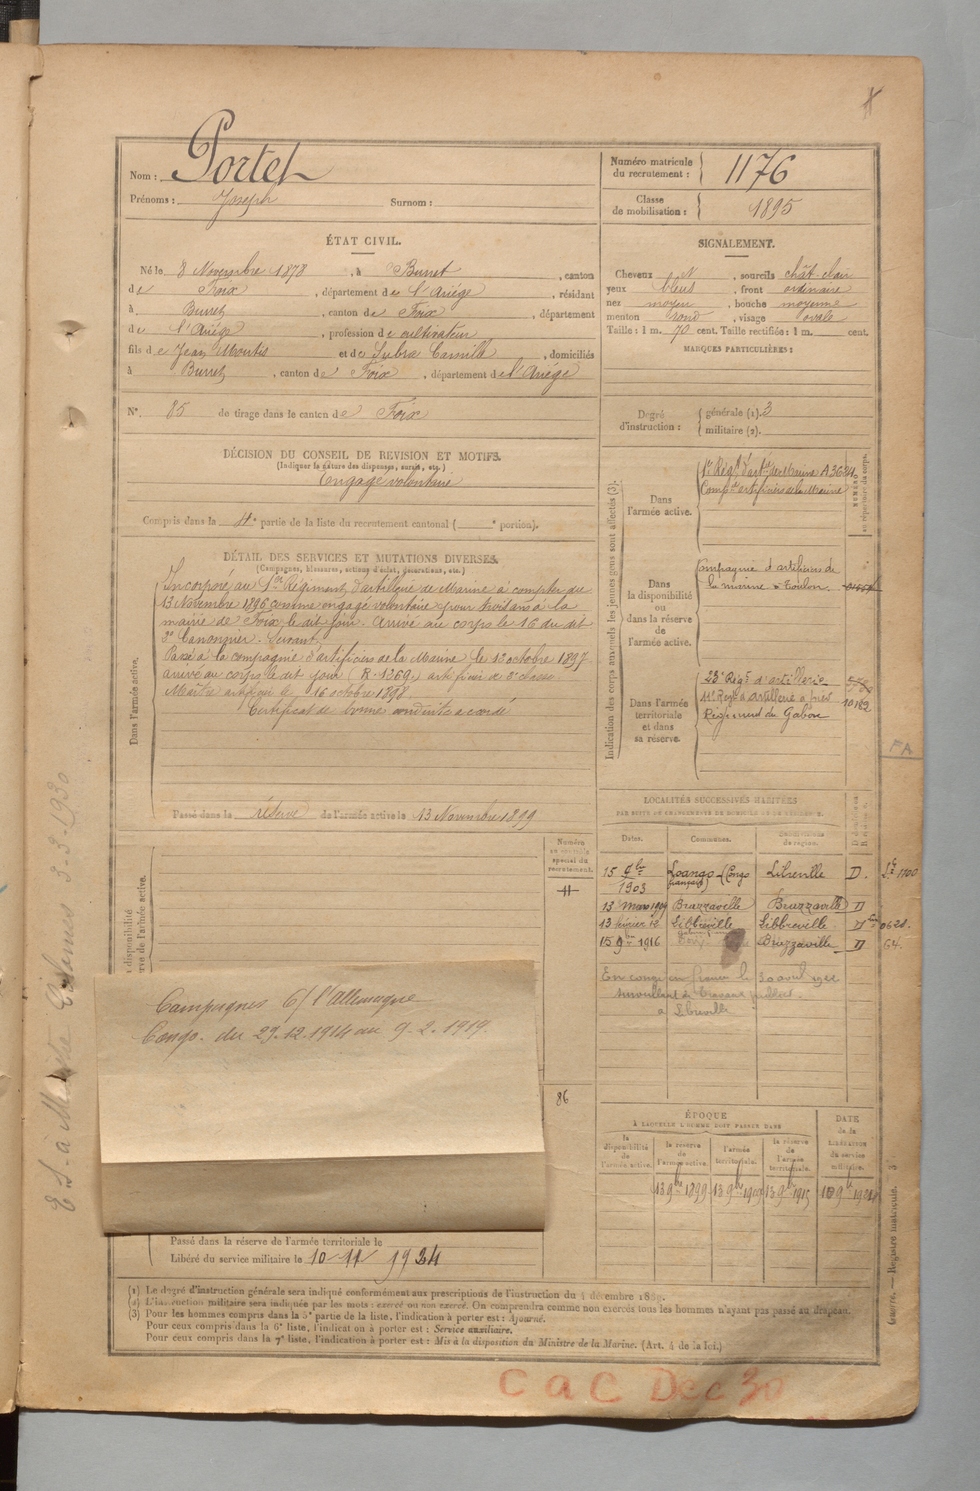 Nom : Portet
Prénoms : Joseph Surnom :
Numéro matricule du recrutement : 1176
Classe de mobilisation : 1895
ÉTAT CIVIL.
Né le 8 Novembre 1878, à Burret, canton
de Foix, département de l'Ariége, résidant
à Burret, canton de Foix, département
de l'Ariége, profession de cultivateur
fils de Jean Moutis et de Subra Camille, domiciliés
à Burret, canton de Foix, département de l'Ariége
N° 85 de tirage dans le canton de Foix
SIGNALEMENT.
Cheveux N, sourcils chât. clair
yeux bleus, front ordinaire
nez moyen, bouche moyenne
menton rond, visage ovale
Taille : 1 m. 70 cent. Taille rectifiée : 1 m. cent.
MARQUES PARTICULIÈRES :
Degré d'instruction : générale (1). 3
militaire (2).
DÉCISION DU CONSEIL DE REVISION ET MOTIFS.
(Indiquer la nature des dispenses, sursis, etc.)
Engagé volontaire
Compris dans la 4e partie de la liste du recrutement cantonal ( e portion).
DÉTAIL DES SERVICES ET MUTATIONS DIVERSES.
(Campagnes, blessures, actions d'éclat, décorations, etc.)
Dans l'armée active.
Incorporé au 1er Régiment d'artillerie de Marine à compter du
13 Novembre 1896 comme engagé volontaire pour trois ans à la
mairie de Foix, le dit jour. Arrivé au corps le 16 du dit
2e Canonnier. Suivant
Passé à la compagnie d'artificiers de la Marine le 13 octobre 1897
arrivé au corps le dit jour (R. 1369) artificier de 2e classe
Maître artificier le 16 octobre 1898
Certificat de bonne conduite accordé
Passé dans la réserve de l'armée active le 13 Novembre 1899
Indication des corps auxquels les jeunes gens sont affectés (3).
NUMÉRO au répertoire du corps.
Dans l'armée active.
1er Régt d'artie de Marine A3624
Compie artificiers de la Marine
Dans la disponibilité ou dans la réserve de l'armée active.
Compagnie d'artificiers de
la marine à Toulon
Dans l'armée territoriale et dans sa réserve.
23e Régt d'artillerie
Régiment du Gabon
10182
FA
LOCALITÉS SUCCESSIVES HABITÉES
PAR SUITE DE CHANGEMENTS DE DOMICILE OU DE RÉSIDENCE.
Dates. Communes. Subdivisions de région.
15 9bre 1903 Loango (Congo français) Libreville D.
13 mars 1909 Brazzaville Brazzaville D
13 février 12 Libbreville Libbreville D 0628
15 9bre 1916 Brazzaville D 64
En congé en France le 30 avril
surveillant de travaux publics
à Libreville
Numéro au contrôle spécial du recrutement.
86
Campagnes C/ l'Allemagne
Congo. du 29.12.1914 au 9.2.1919.
ÉPOQUE
À LAQUELLE L'HOMME DOIT PASSER DANS
la disponibilité de l'armée active.
la réserve de l'armée active.
l'armée territoriale.
la réserve de l'armée territoriale.
DATE de la libération du service militaire.
13 9bre 1899
13 9bre 1909
13 9bre 1915
10 9bre 1924
Passé dans la réserve de l'armée territoriale le
Libéré du service militaire le 10 11 1924
(1) Le degré d'instruction générale sera indiqué conformément aux prescriptions de l'instruction du 4 décembre 1889.
(2) L'instruction militaire sera indiquée par les mots : exercé ou non exercé. On comprendra comme non exercés tous les hommes n'ayant pas passé au drapeau.
(3) Pour les hommes compris dans la 5e partie de la liste, l'indication à porter est : Ajourné.
Pour ceux compris dans la 6e liste, l'indication à porter est : Service auxiliaire.
Pour ceux compris dans la 7e liste, l'indication à porter est : Mis à la disposition du Ministre de la Marine. (Art. 4 de la loi.)
Guerre. — Registre matricule.
CaC Dec 30